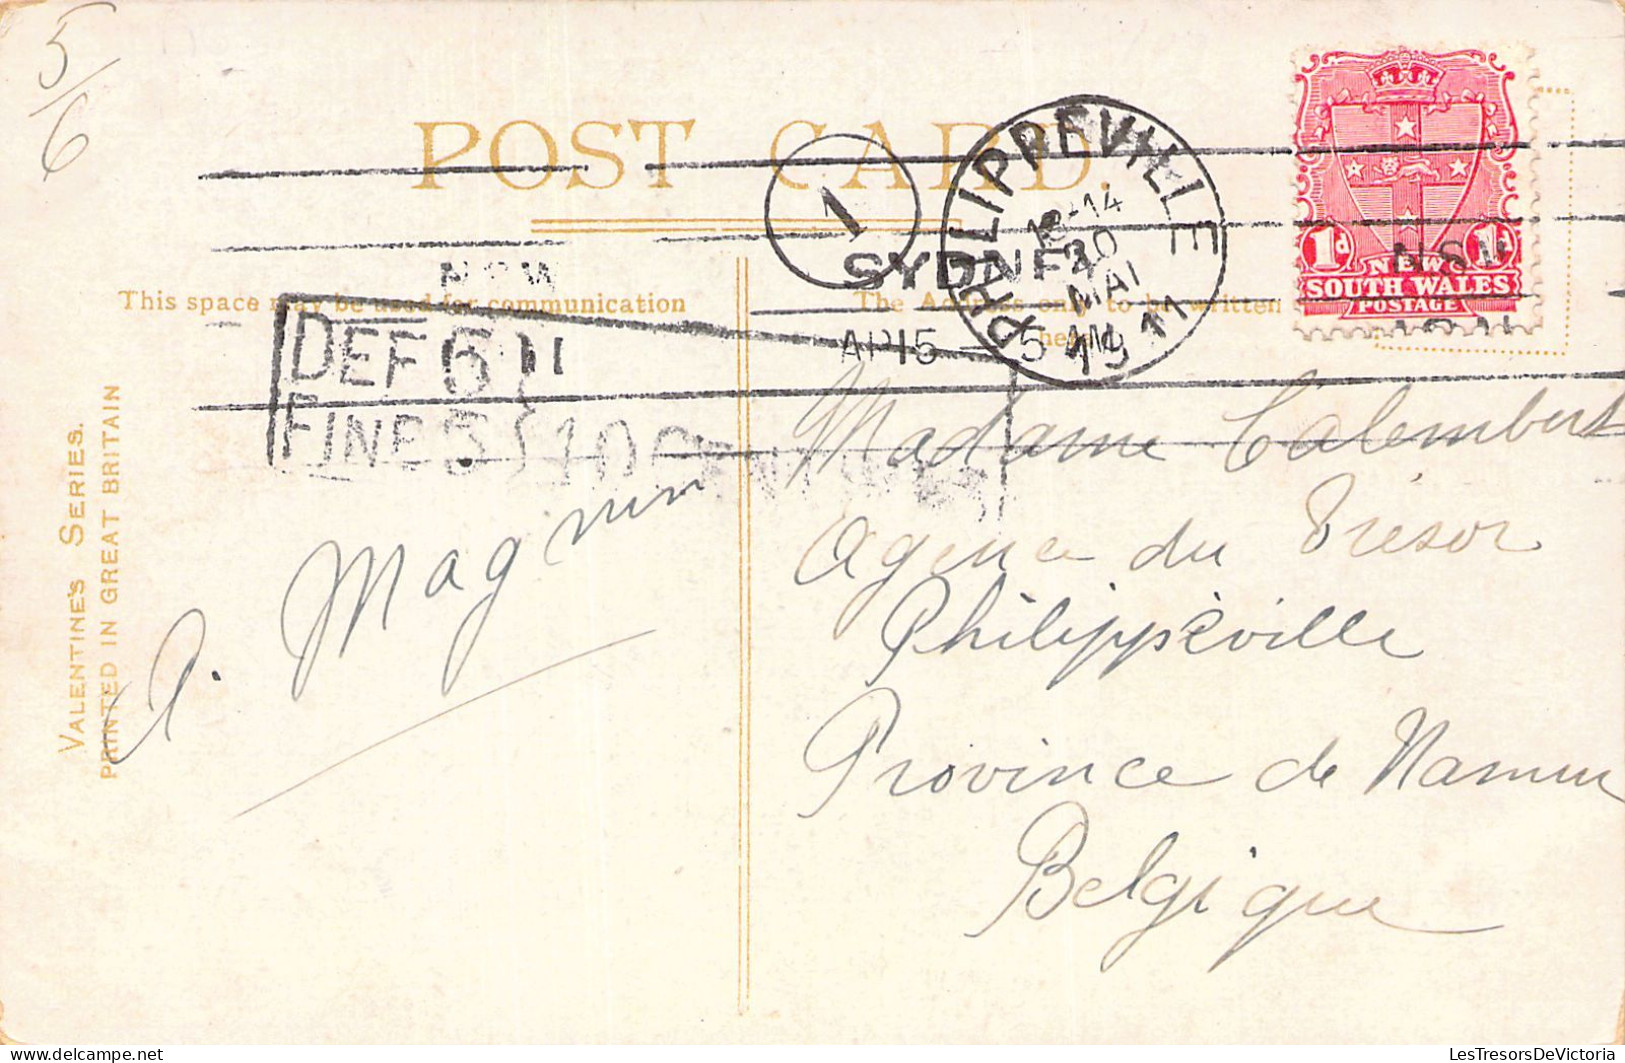 5/6
POST CARD.
1
PHILIPPEVILLE
18-14
20
MAI
1911
SYDNEY
N.S.W
AP 15 5 AM
N.S.W
1d 1d
NEW
SOUTH WALES
POSTAGE
This space may be used for communication
The Address only to be written
here
DEF 5
FINE 5 } 10 CENTIMES
VALENTINE'S SERIES.
PRINTED IN GREAT BRITAIN
Madame Calembert
Agence du Trésor
Philippeville
Province de Namur
Belgique
A. Magnin
LesTresorsDeVictoria.com